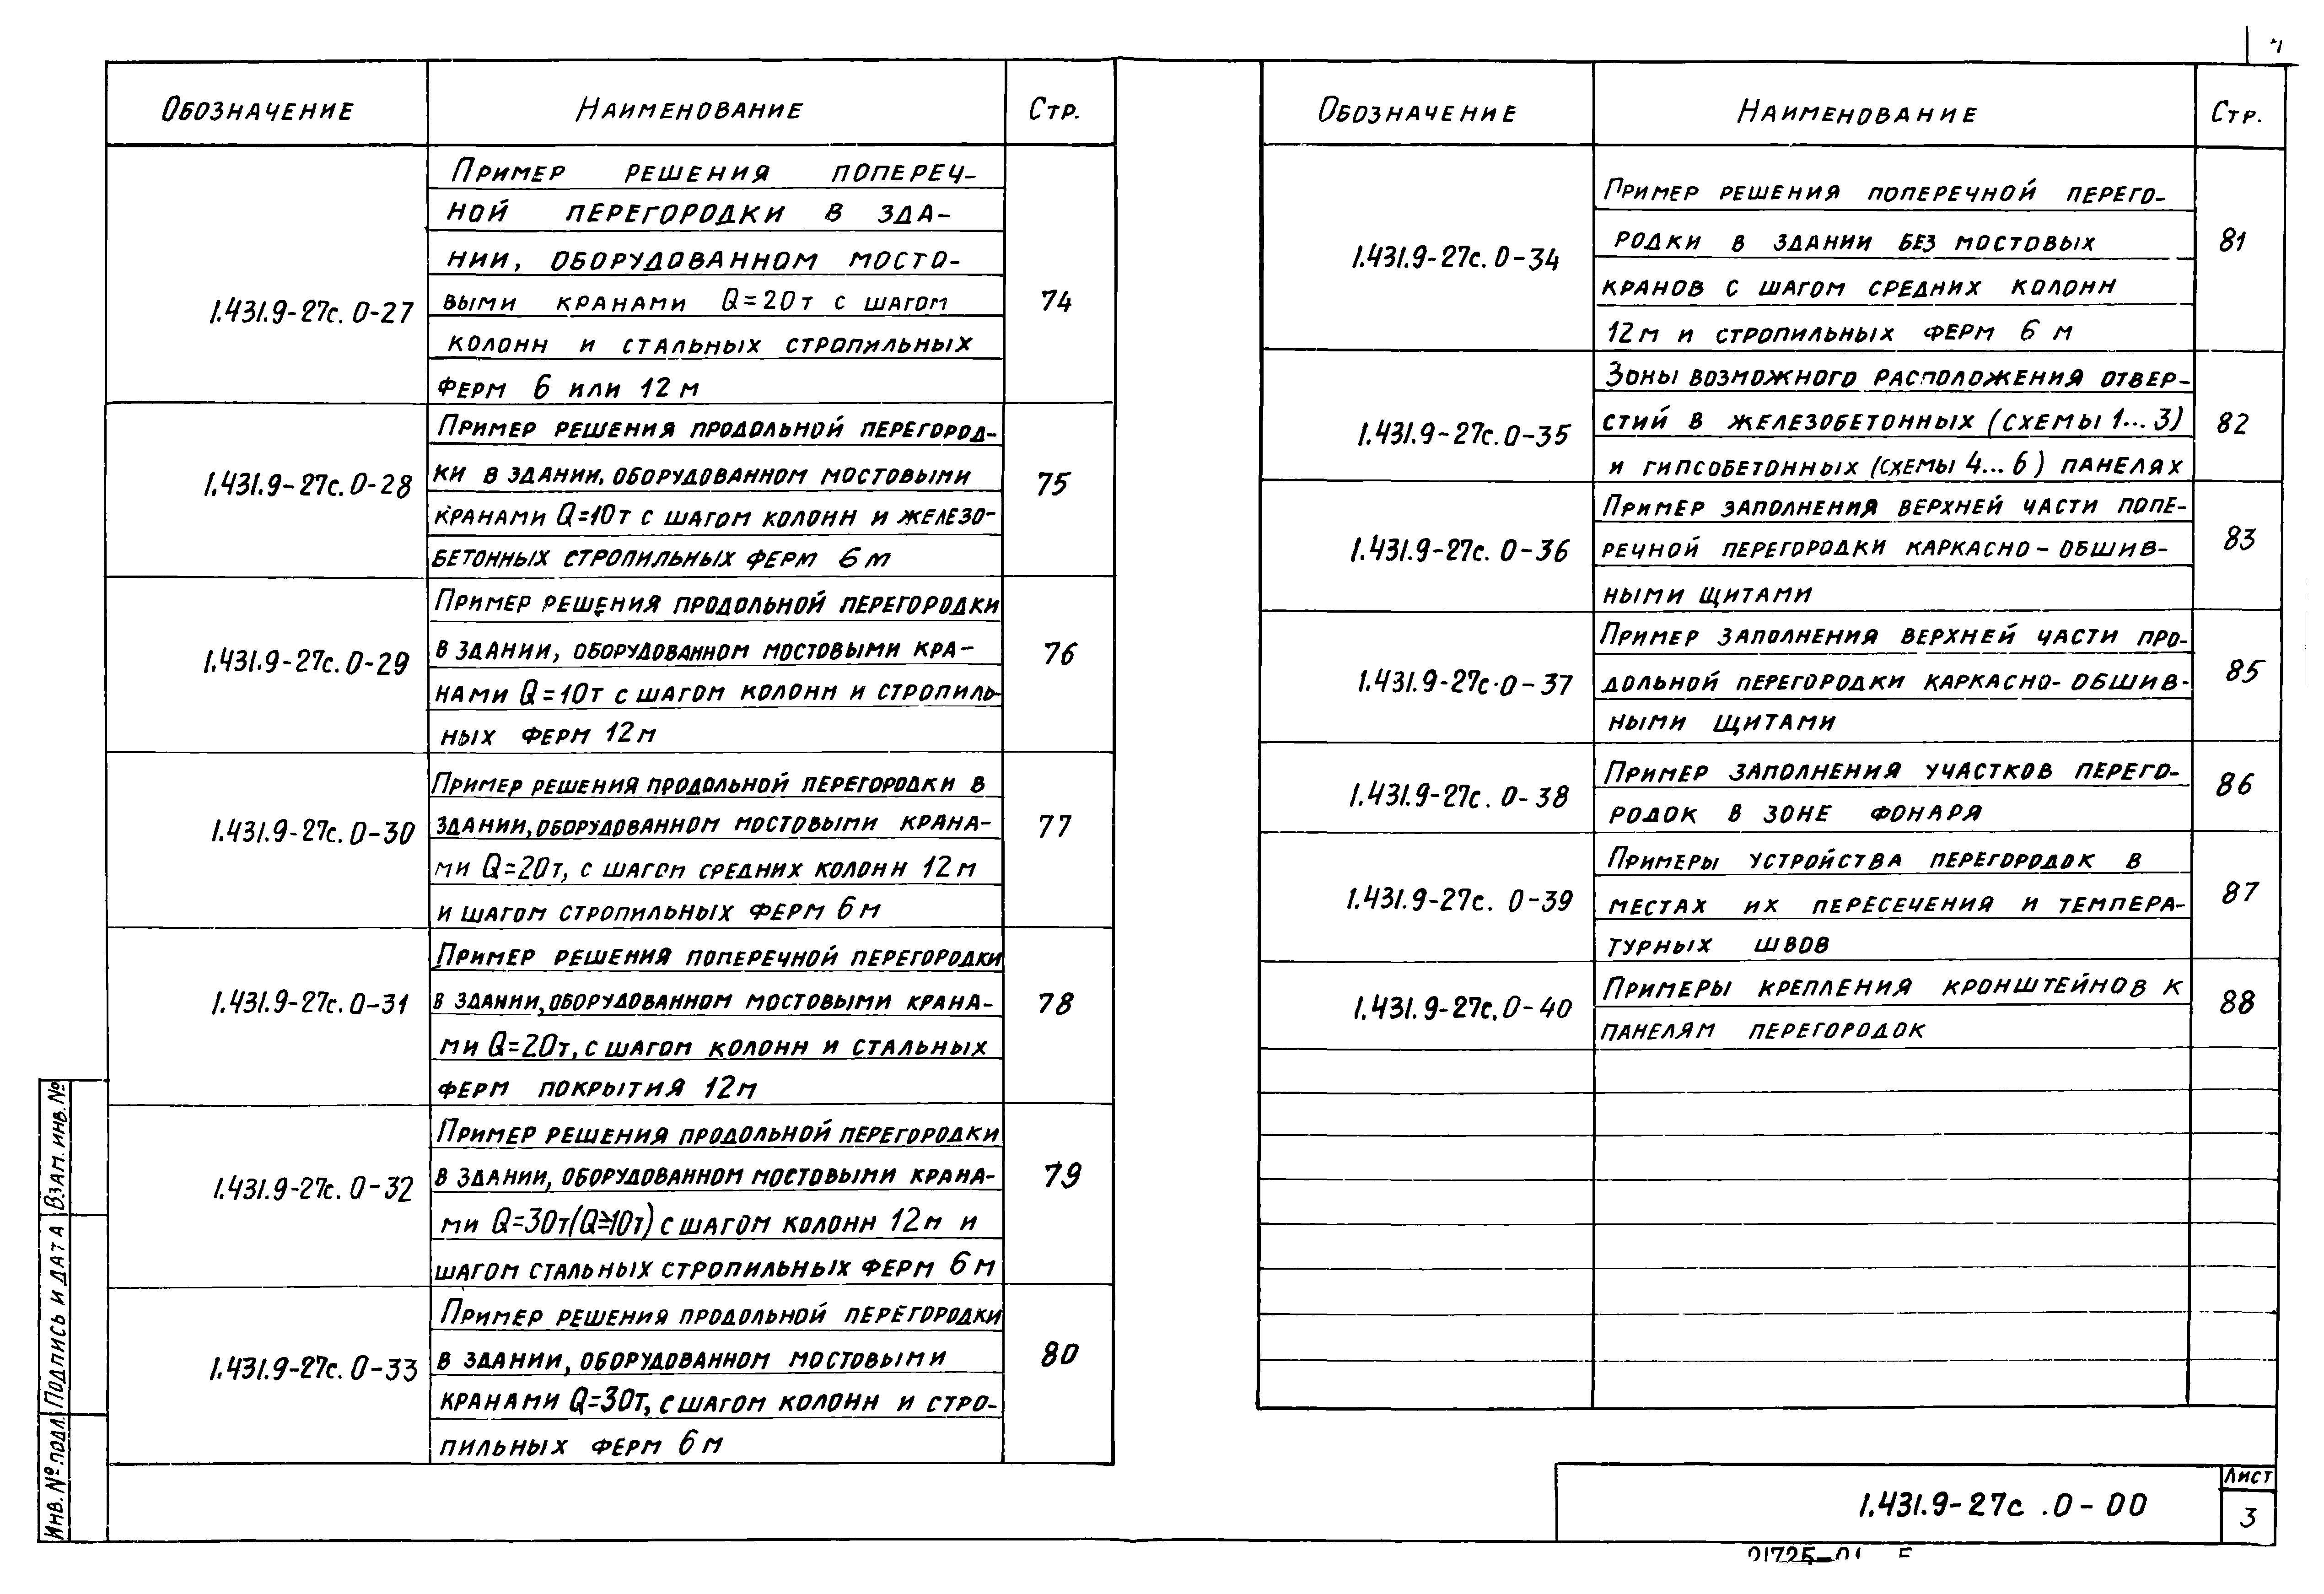 Обозначение
Наименование
Стр.
1.431.9-27с. 0-27
Пример решения попереч-
ной перегородки в зда-
нии, оборудованном мосто-
выми кранами Q=20т с шагом
колонн и стальных стропильных
ферм 6 или 12 м
74
1.431.9-27с. 0-28
Пример решения продольной перегород-
ки в здании, оборудованном мостовыми
кранами Q=10т с шагом колонн и железо-
бетонных стропильных ферм 6м
75
1.431.9-27с. 0-29
Пример решения продольной перегородки
в здании, оборудованном мостовыми кра-
нами Q=10т с шагом колонн и стропиль-
ных ферм 12м
76
1.431.9-27с. 0-30
Пример решения продольной перегородки в
здании, оборудованном мостовыми крана-
ми Q=20т, с шагом средних колонн 12м
и шагом стропильных ферм 6м
77
1.431.9-27с. 0-31
Пример решения поперечной перегородки
в здании, оборудованном мостовыми крана-
ми Q=20т, с шагом колонн и стальных
ферм покрытия 12м
78
1.431.9-27с. 0-32
Пример решения продольной перегородки
в здании, оборудованном мостовыми крана-
ми Q=30т (Q≥10т) с шагом колонн 12м и
шагом стальных стропильных ферм 6м
79
1.431.9-27с. 0-33
Пример решения продольной перегородки
в здании, оборудованном мостовыми
кранами Q=30т, с шагом колонн и стро-
пильных ферм 6м
80
Обозначение
Наименование
Стр.
1.431.9-27с. 0-34
Пример решения поперечной перего-
родки в здании без мостовых
кранов с шагом средних колонн
12м и стропильных ферм 6 м
81
1.431.9-27с. 0-35
Зоны возможного расположения отвер-
стий в железобетонных (схемы 1... 3)
и гипсобетонных (схемы 4... 6) панелях
82
1.431.9-27с. 0-36
Пример заполнения верхней части попе-
речной перегородки каркасно-обшив-
ными щитами
83
1.431.9-27с. 0-37
Пример заполнения верхней части про-
дольной перегородки каркасно-обшив-
ными щитами
85
1.431.9-27с. 0-38
Пример заполнения участков перего-
родок в зоне фонаря
86
1.431.9-27с. 0-39
Примеры устройства перегородок в
местах их пересечения и темпера-
турных швов
87
1.431.9-27с. 0-40
Примеры крепления кронштейнов к
панелям перегородок
88
Взам. инв. №
Подпись и дата
Инв. № подл.
1.431.9-27с .0-00
Лист
3